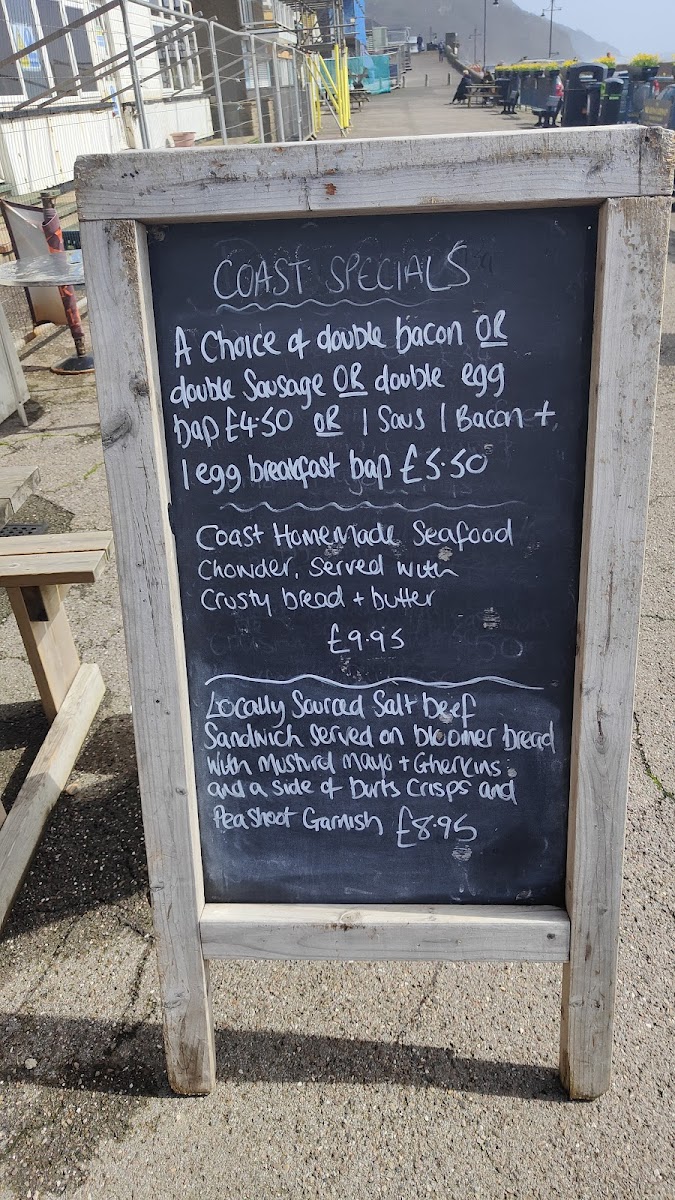 COAST SPECIALS
A Choice of double bacon OR
double Sausage OR double egg
bap £4.50 OR 1 Saus 1 Bacon +
1 egg breakfast bap £5.50
Coast Homemade Seafood
Chowder, Served with
Crusty bread + butter
£9.95
Locally Sourced Salt beef
Sandwich served on bloomer bread
with Mustard Mayo + Gherkins
and a side of burts Crisps and
Pea Shoot Garnish £8.95